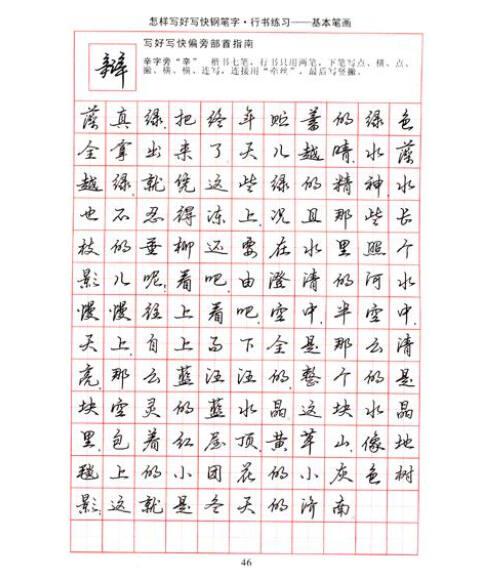 怎样写好写快钢笔字·行书练习——基本笔画
写好写快偏旁部首指南
辛字旁“辛” 楷书七笔，行书只用两笔，下笔写点、横、点、
撇、横、横、连写，连接用“牵丝”，最后写竖撇。
藻真绿,把终年贮蓄的绿色
全拿出来了.天儿越晴,水藻
越绿,就凭这些绿的精神,水
也不忍得冻上,况且那些长
枝的垂柳还要在水里照个
影儿呢,看吧,由澄清的河水
慢慢往上看吧,空中,半空中,
天上,自上而下全是那么清
亮,那么蓝汪汪的,整个的是
块空灵的蓝水晶.这块水晶
里,包着红屋顶,黄草山,像地
毯上的小团花的小灰色树
影.这就是冬天的济南
46